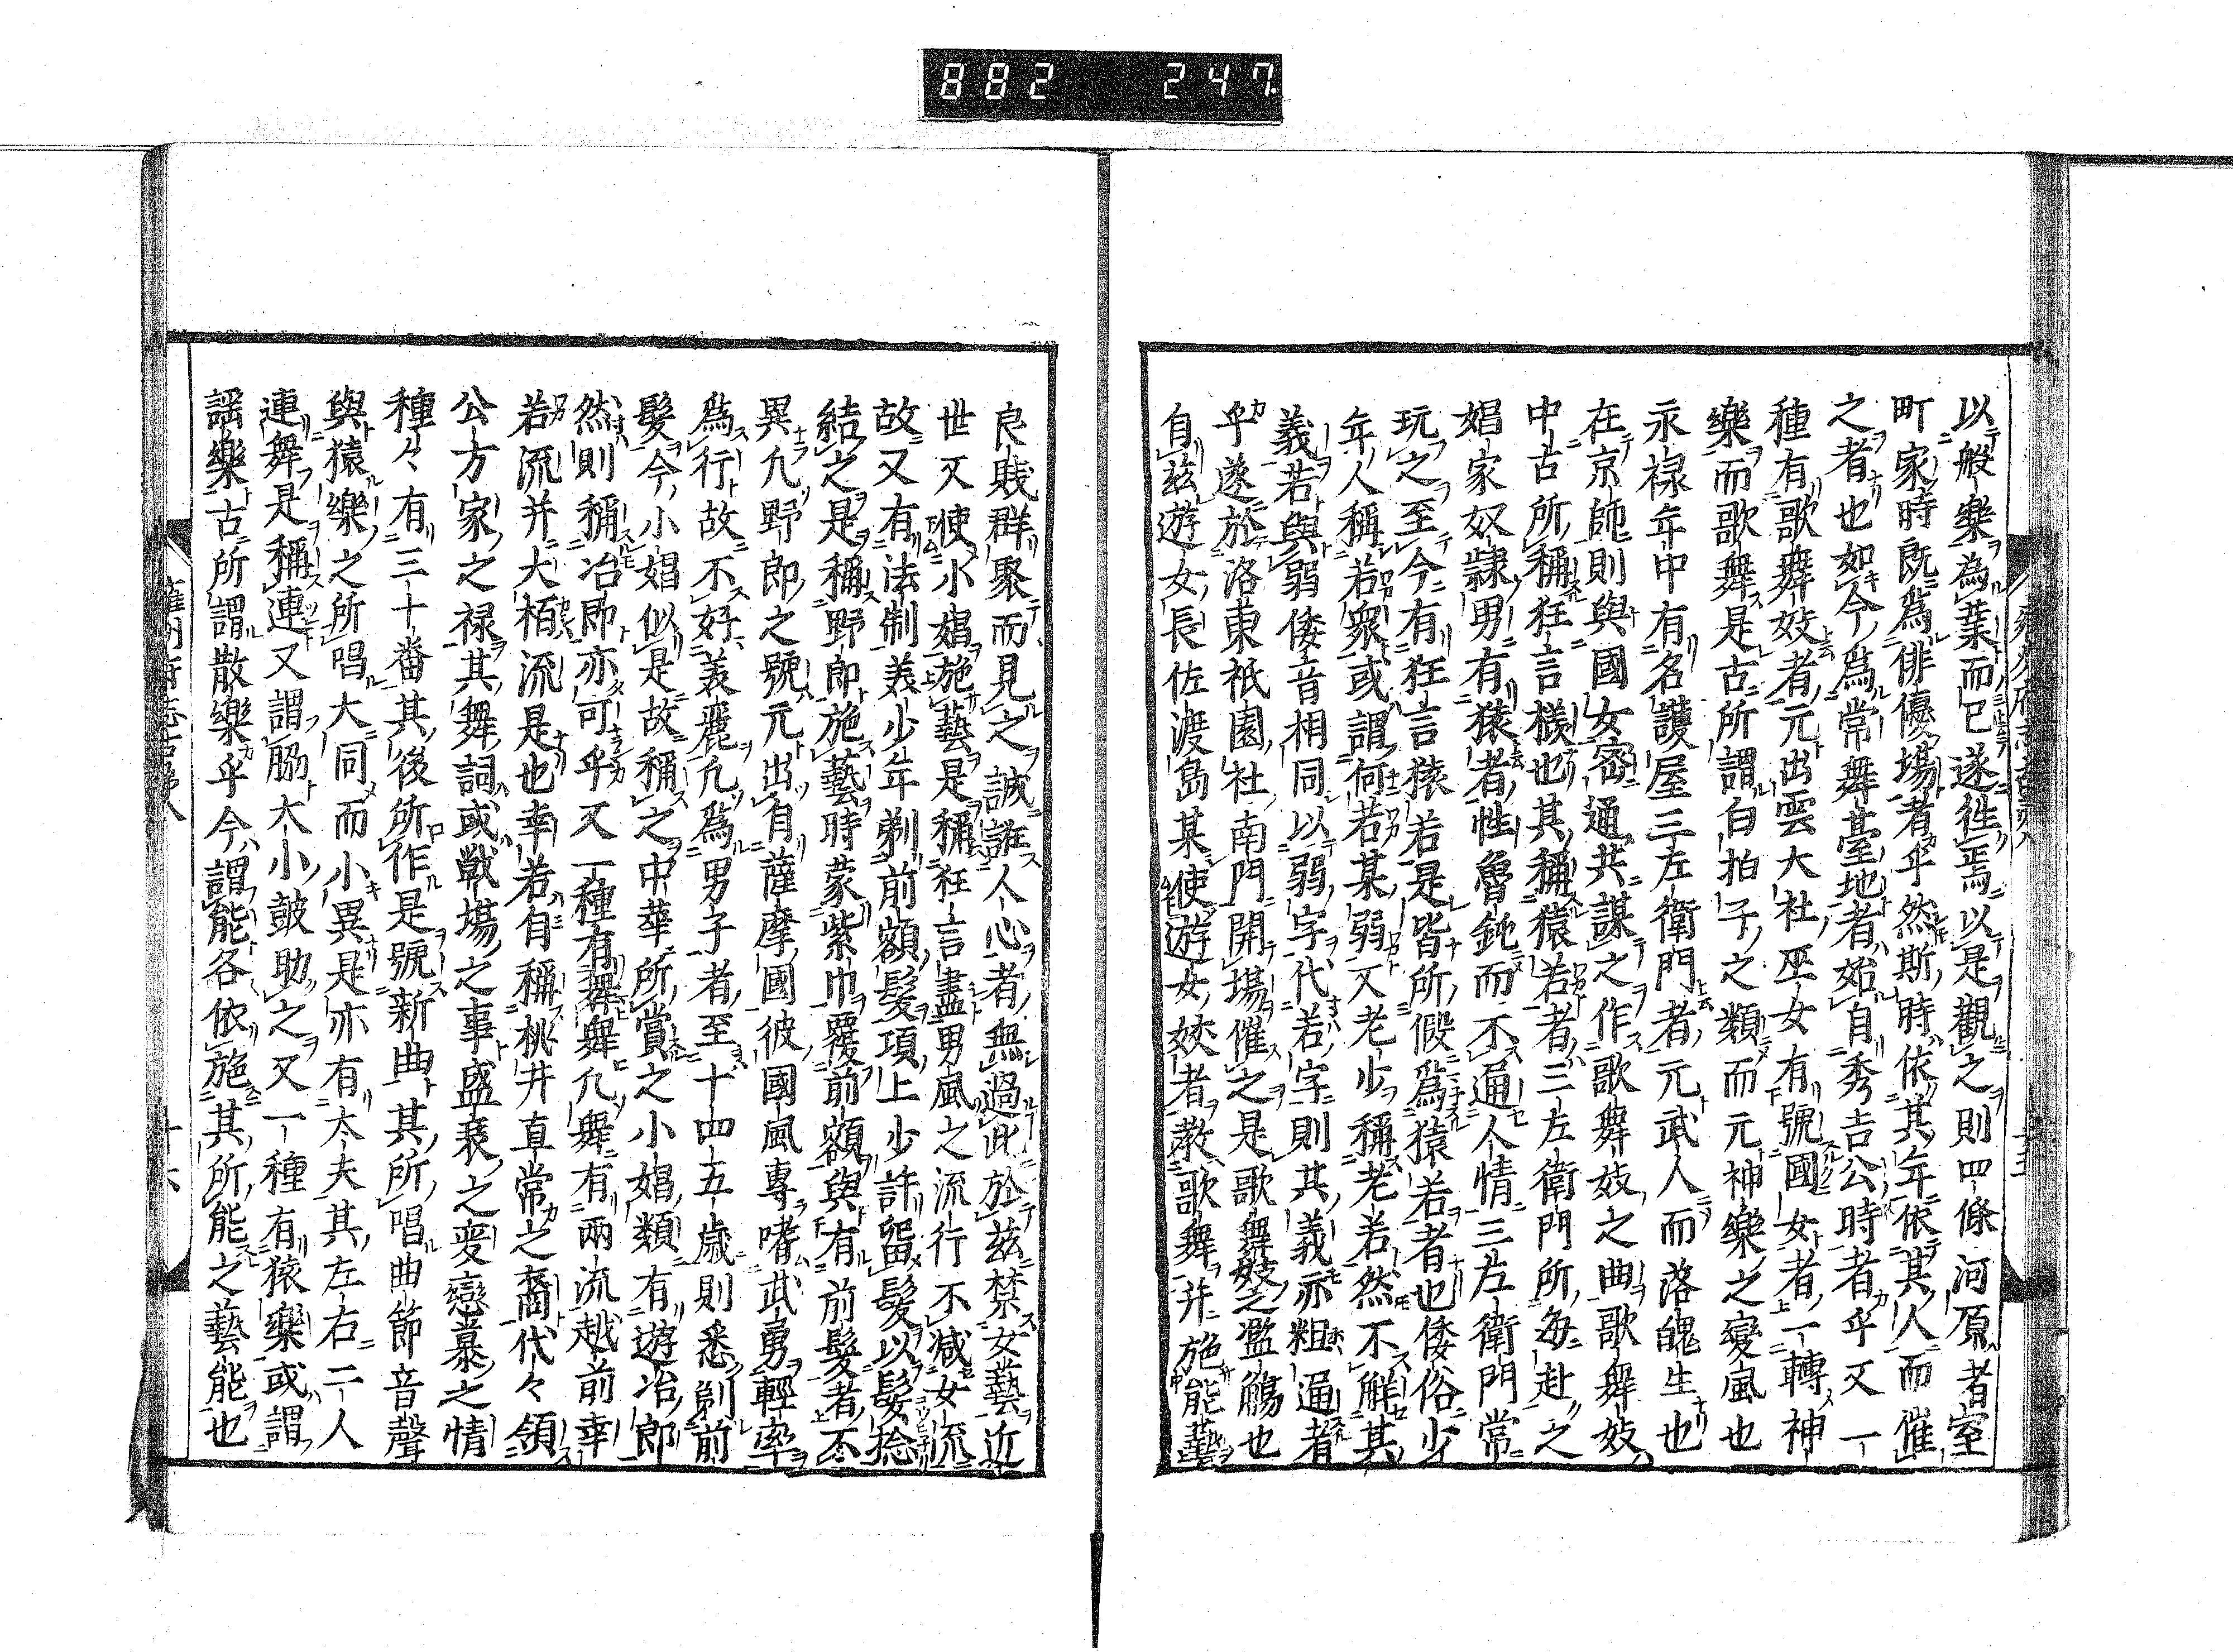 882 247.
以般樂為業而已遂徃焉以是觀之則四條河原者室
町家時既爲俳優塲者乎然斯時依其年依其人而催
之者也如今爲常舞臺地者始自秀吉公時者乎又一
種有歌舞妓者元出雲大社巫女有號國女者一轉神
樂而歌舞是古所謂白拍子之類而元神樂之變風也
永禄年中有名護屋三左衛門者元武人而落魄生也
在京師則與國女密通共謀之作歌舞妓之曲歌舞妓
中古所稱狂言様也其稱猿若者三左衛門所毎赴之
娼家奴隷男有猿者性魯鈍而不通人情三左衛門常
玩之至今有狂言猿若是皆所假爲猿若者也倭俗少
年人稱若衆或謂何若某弱又老少稱老若然不解其
義若與弱倭音相同以弱字代若字則其義亦粗通者
乎遂於洛東祇園社南門開塲催之是歌舞妓之濫觴也
自茲遊女長佐渡島某使遊女妓者教歌舞并施能藝
良賤群聚而見之誠誑人心者無過此於茲禁女藝近
世又使小娼施藝是稱狂言盡男風之流行不減女流
故又有法制美少年剃前額髮項上少許留髮以髮捻
結之是稱野郎施藝時蒙紫巾覆前額與有前髮者不
異凢野郎之號元出有薩摩國彼國風專嗜武勇輕率
爲行故不好美麗凢爲男子者至十四五歳則悉剃前
髮今小娼似是故稱之中華所賞之小娼類有遊冶郎
然則稱冶郎亦可乎又一種有舞舞凢舞有兩流越前幸
若流并大栢流是也幸若自稱桃井直常之裔代々領
公方家之禄其舞詞或戦塲之事盛衰之変戀慕之情
種々有三十番其後所作是號新曲其所唱曲節音聲
與猿樂之所唱大同而小異是亦有太夫其左右二人
連舞是稱連又謂脇大小鼓助之又一種有猿樂或謂
謡樂古所謂散樂乎今謂能各依施其所能之藝能也
雍州府志古蹟八 十六